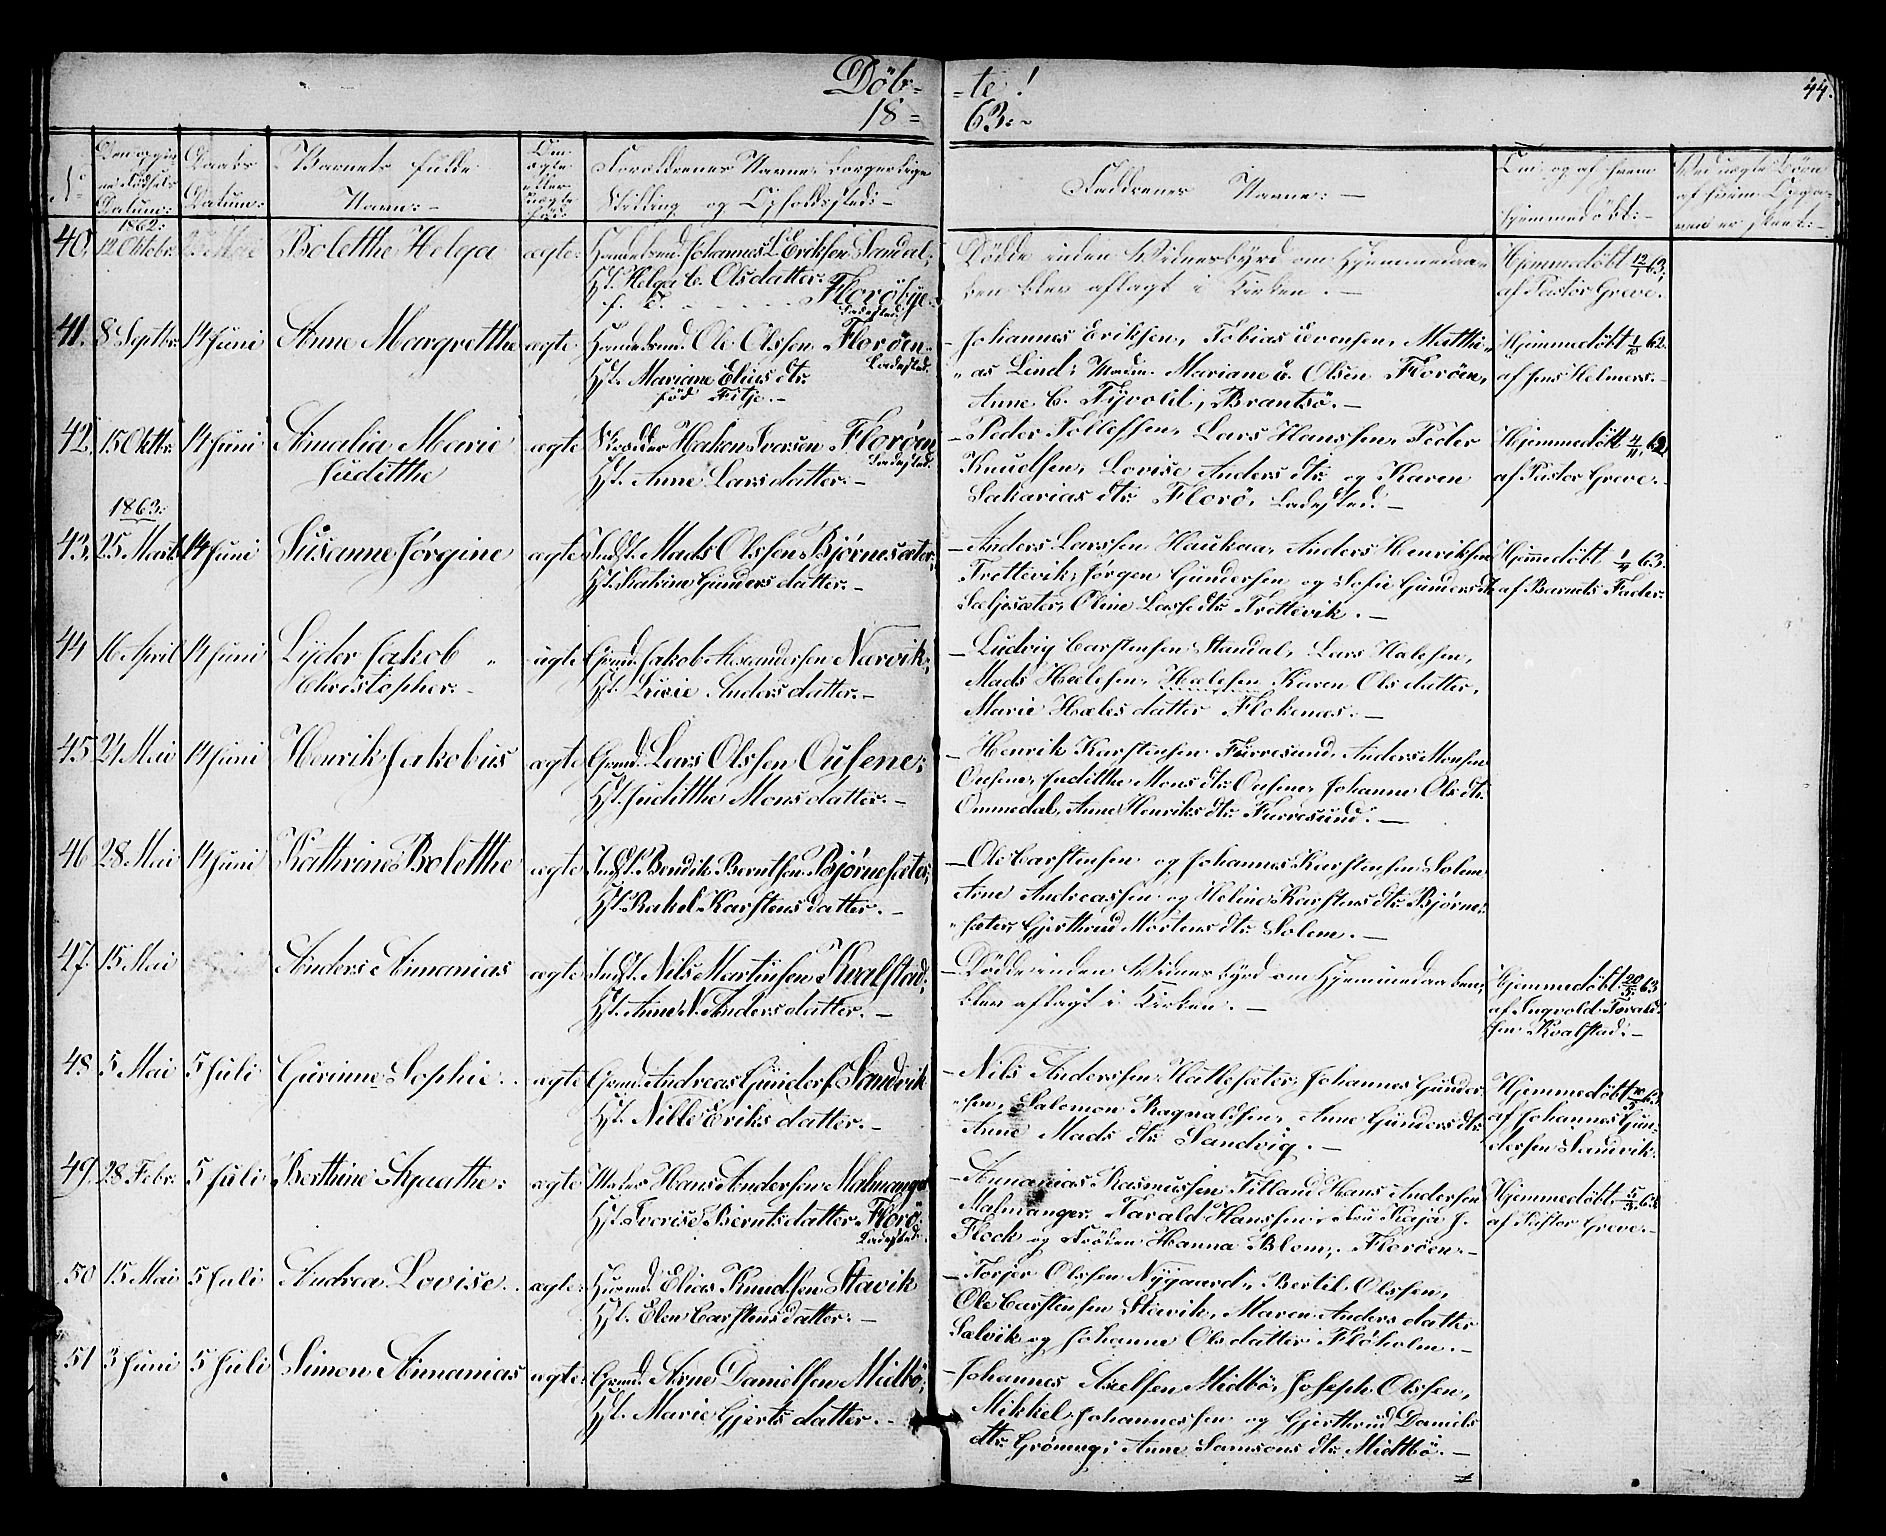 Döb= =te!
44.
18= 63:~
No
Den opgivne Födsels Datum:
Daabs Datum:
Barnets fulde Navn:-
Om ægte eller uægte föd:
Forældrenes Navne, borgerlige Stilling og Opholdssted:-
Faddrenes Navne:-
Om og af hvem hjemmedöbt:-
1862:
40. 12 Oktobr. Bolethe Helga ægte: Handelsmd. Johannes L. Eriksen Standal,
H. Helga C. Olsdatter.
Floröbye.
Ladested.
Dödde inden Vidnesbyrd om Hjemmedaa=
ben blev aflagt i Kirken.-
Hjemmedöbt 12/1 63,
af Pastor Greve.
41. 8 Septbr. 14 Juni Anne Margretthe ægte Handelsmd. Ole Olssen Floröen.
Ladested.
H. Mariane Elias dtr.
föd Fitje.-
- Johannes Eriksen, Tobias Evensen, Matthi=
=as Lind, Madm. Mariane E. Olsen Floröen,
Anne C. Fyrvold, Brantsö.-
Hjemmedöbt 1/10 62.
af Jens Helmers.-
42. 15 Oktbr. 14 Juni Amalia Marie
Juditthe
ægte Skrædder Hakon Iversen Floröen
Ladested.
H. Anne Larsdatter.-
- Peder Tollefsen, Lars Hanssen, Peder
Knudsen, Lovise Anders dtr. og Karen
Sakarias dtr. Florö, Ladested.-
Hjemmedöbt 4/11 62
af Pastor Greve.-
1863:
43. 25 Marts 14 Juni Susanne Jörgine ægte Indst. Mads Olssen Björnesæter,
H. Katrine Gunders datter.-
- Anders Larssen Haukaa, Anders Henriksen
Trettevik, Jörgen Gundersen og Sofie Gunders dtr.
Seljesæter, Oline Lasse dtr. Trettevik.-
Hjemmedöbt 1/4 63.
af Barnets Fader.
44 16 April 14 Juni Lyder Jakob
Christopher.-
ægte Grmd. Jakob Alexandersen Narvik,
H. Lucie Anders datter.-
- Ludvig Carstensen Standal, Lars Halesen,
Mads Hælesen, Hælesen Karen Ols datter,
Marie Hæles datter Flokenæs.-
45 24 Mai 14 Juni Henrik Jakobus ægte Grmd. Lars Olssen Ousene,
H. Juditthe Mons datter.-
- Henrik Karstensen Furresund, Anders Monsen
Ousene, Juditthe Mons dtr. Ousene, Johanne Ols dtr.
Ommedal, Anne Henriks dtr. Furresund.-
46 28 Mai 14 Juni Kathrine Boletthe ægte Indst. Bendik Berntsen Björnesæter,
H. Rakel Karstens datter.-
- Ole Carstensen og Johannes Karstensen Solem
Arne Andreassen og Heline Karstens dtr. Björne=
=sæter, Gjertrud Mortens dtr. Solem.-
47. 15 Mai Anders Annanias ægte Indst. Nils Martinsen Kvalstad,
H. Anne N. Anders datter.-
- Dödde inden Vidnesbyrd om Hjemmedaaben
blev aflagt i Kirken.-
Hjemmedöbt 20/5 63
af Ingvold Torald=
sen Kvalstad.-
48 5 Mai 5 Juli Gurinne Sophie ægte Grmd. Andreas Gunders. Sandvik
H. Nille Eriks datter.-
- Nils Anderssen Hatlesæter, Johannes Gunder=
=sen, Salomon Ragnaldsen, Anne Gunders dtr.
Anne Mads dtr. Sandvig.-
Hjemmedöbt 63.
af Johannes Gun=
dersen Sandvik.
49. 28 Febr. 5 Juli Berthine Agathe: ægte Hans Andersen Malmanger
H. Lovise Bernts datter Florö.
Ladested.
- Annanias Rasmussen Tilland, Hans Andersen
Malmanger, Tarald Hanssen, Kaja J.
Flock og Fröken Hanna Blom, Floröen.-
Hjemmedöbt 63.
af Pastor Greve.-
50 15 Mai 5 Juli Andrea Lovise ægte: Husmd. Elias Knudsen Stavik
H. Elen Carstens datter.-
- Torjer Olssen Nygaard, Bertil Olssen,
Ole Carstensen Stavik, Maren Anders datter
Salvik og Johanne Ols datter Flöholm.-
51 3 Juni 5 Juli Simon Annanias ægte: Grmd. Arne Danielsen Midtbö,
H. Marie Gjerts datter.-
- Johannes Axelsen Midtbö, Joseph Olssen,
Mikkel Johannessen og Gjertrud Daniels
dtr. Gröneng, Anne Samsons dtr. Midtbö.-